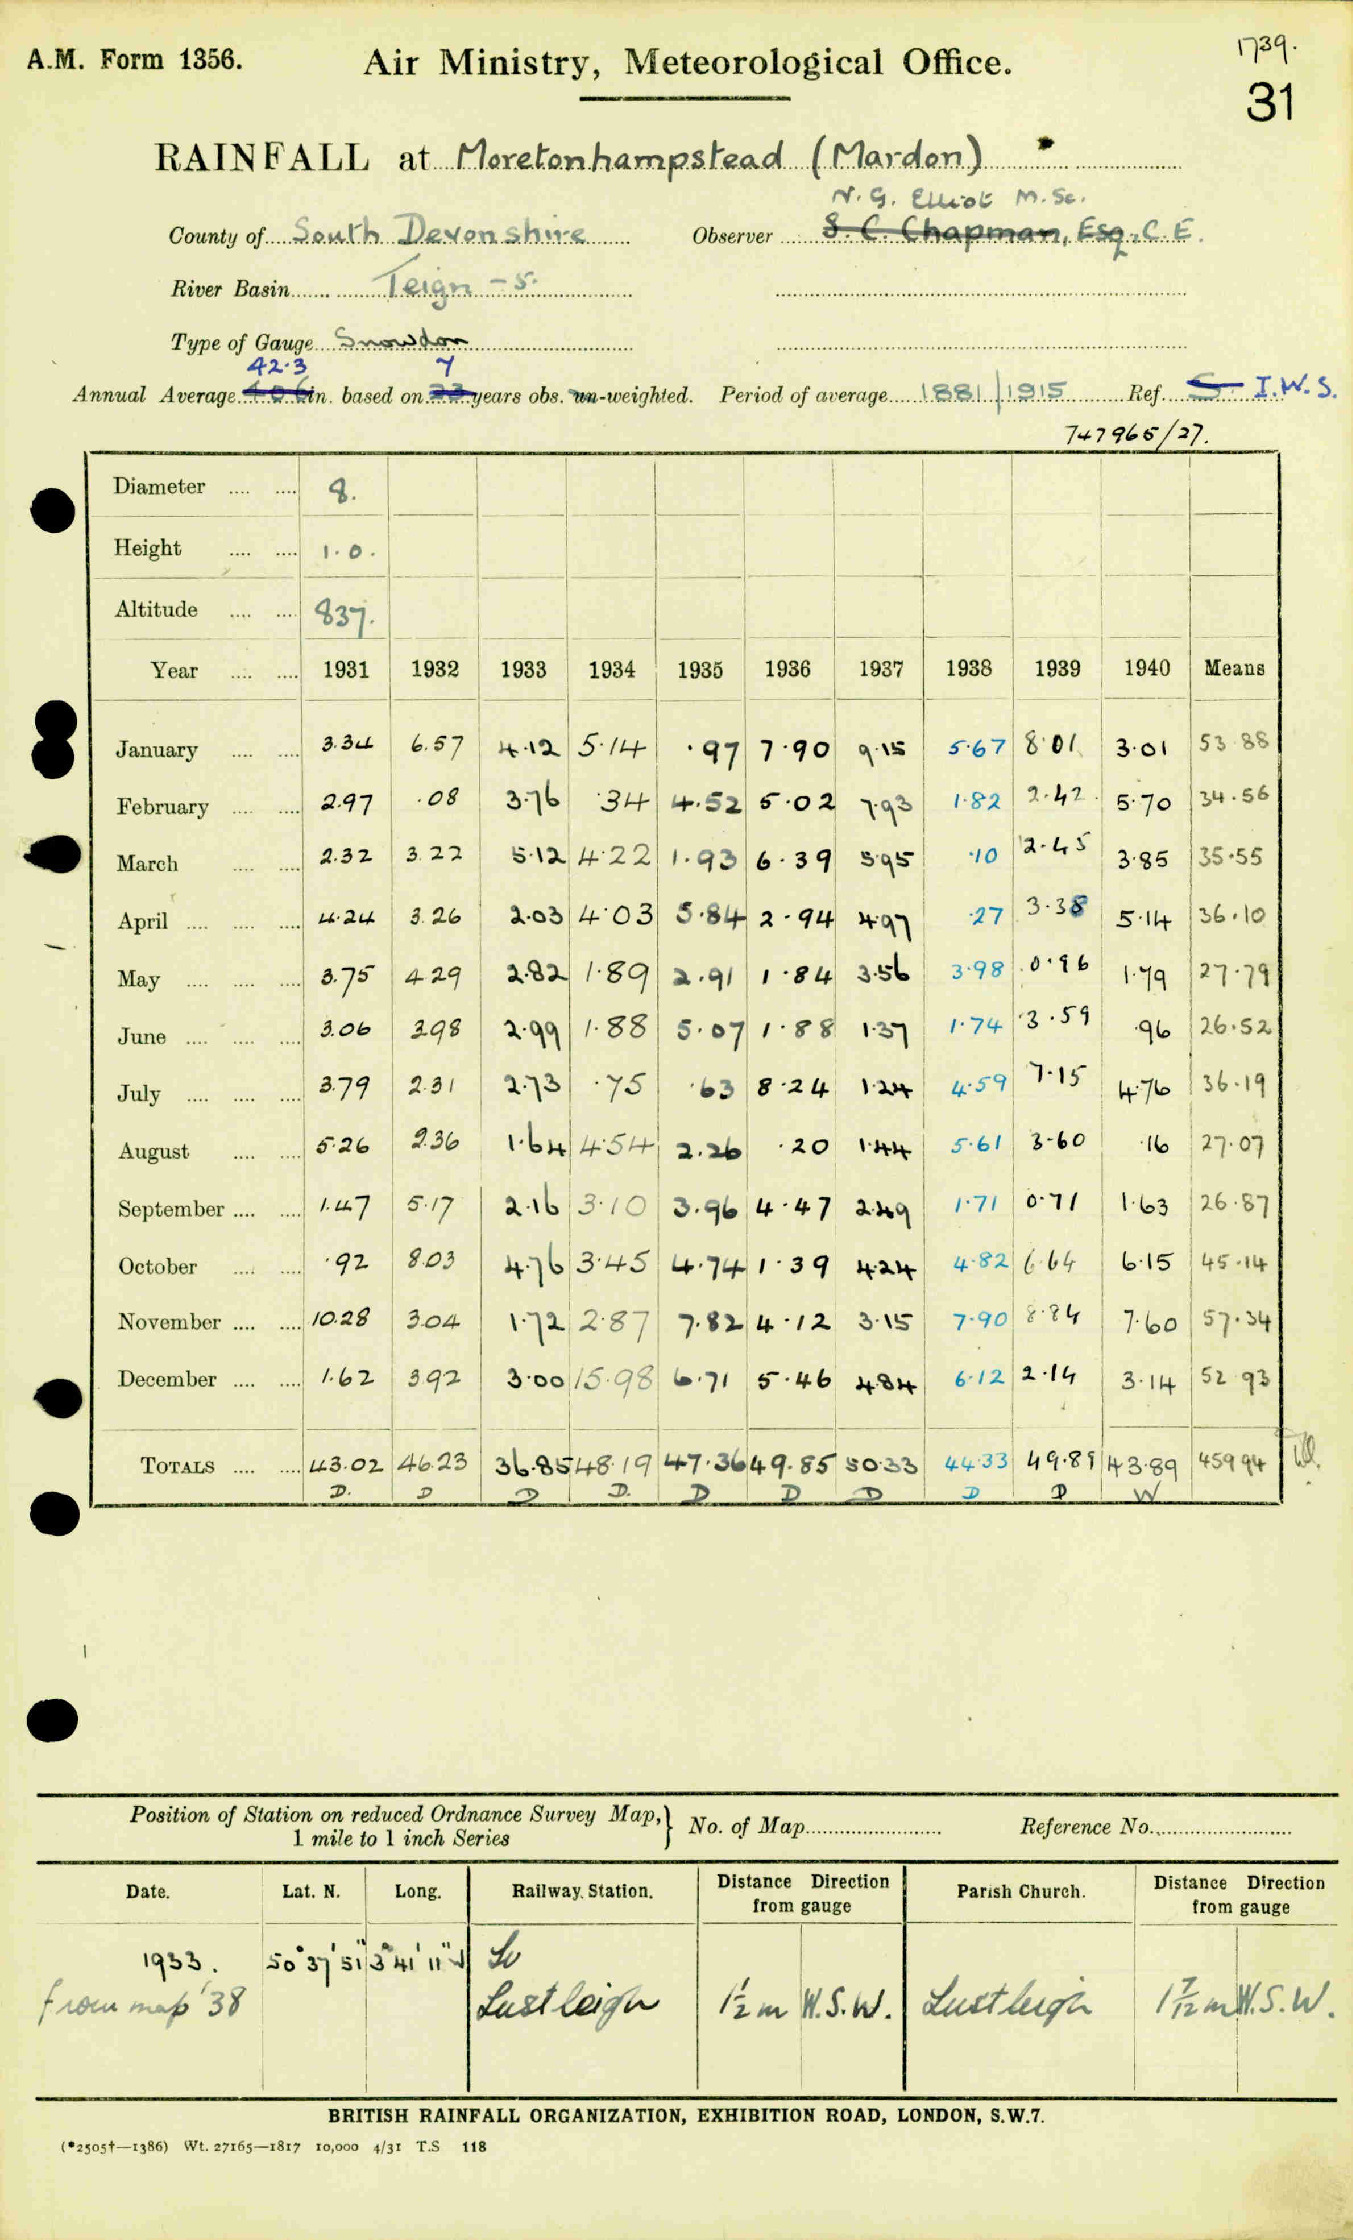 A.M. Form 1356. Air Ministry, Meteorological Office. 1739.
31
RAINFALL at Moretonhampstead (Mardon)
N. G. Elliot M.Sc.
County of South Devonshire Observer S. C. Chapman, Esq., C.E.
River Basin Teign – 5.
Type of Gauge Snowdon
42.3 7
Annual Average 40.6 in. based on 23 years obs. un-weighted. Period of average 1881/1915 Ref. S. I.W.S.
747965/27.
Diameter .... .... 8.
Height .... .... 1.0.
Altitude .... .... 837.
Year .... .... 1931 1932 1933 1934 1935 1936 1937 1938 1939 1940 Means
January .... .... 3.34 6.57 4.12 5.14 .97 7.90 9.15 5.67 8.01 3.01 53.88
February .... .... 2.97 .08 3.76 .34 4.52 5.02 7.93 1.82 2.42 5.70 34.56
March .... .... 2.32 3.22 5.12 4.22 1.93 6.39 5.95 .10 2.45 3.85 35.55
April .... .... .... 4.24 3.26 2.03 4.03 5.84 2.94 4.97 .27 3.38 5.14 36.10
May .... .... .... 3.75 4.29 2.82 1.89 2.91 1.84 3.56 3.98 0.96 1.79 27.79
June .... .... .... 3.06 3.98 2.99 1.88 5.07 1.88 1.37 1.74 3.59 .96 26.52
July .... .... .... 3.79 2.31 2.73 .75 .63 8.24 1.24 4.59 7.15 4.76 36.19
August .... .... 5.26 2.36 1.64 4.54 2.26 .20 1.44 5.61 3.60 .16 27.07
September .... .... 1.47 5.17 2.16 3.10 3.96 4.47 2.49 1.71 0.71 1.63 26.87
October .... .... .92 8.03 4.76 3.45 4.74 1.39 4.24 4.82 6.64 6.15 45.14
November .... .... 10.28 3.04 1.72 2.87 7.82 4.12 3.15 7.90 8.84 7.60 57.34
December .... .... 1.62 3.92 3.00 15.98 6.71 5.46 4.84 6.12 2.14 3.14 52.93
TOTALS .... .... 43.02 46.23 36.85 48.19 47.36 49.85 50.33 44.33 49.89 43.89 459.94
D. D D D. D D D D D W
Position of Station on reduced Ordnance Survey Map,} No. of Map Reference No.
1 mile to 1 inch Series
Date. Lat. N. Long. Railway Station. Distance Direction from gauge Parish Church. Distance Direction from gauge
1933. 50°37'51" 3°41'11"W
from map '38 Lustleigh 1½ m W.S.W. Lustleigh 1 7/12 m W.S.W.
BRITISH RAINFALL ORGANIZATION, EXHIBITION ROAD, LONDON, S.W.7.
(*2505†—1386) Wt. 27165—1817 10,000 4/31 T.S 118